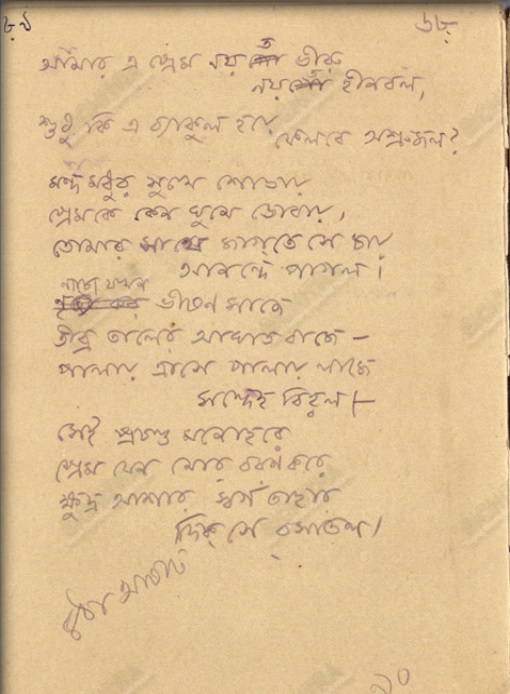 ৬৮
আমার এ প্রেম নয়ত ভীরু
নয়ত হীনবল,
শুধু কি এ ব্যাকুল হয়ে
ফেলবে অশ্রুজল?
মন্দমধুর সুখে শোভায়
প্রেমকে কেন ঘুমে ডোবায়,
তোমার সাথে জাগতে সে চায়
আনন্দে পাগল।
নাচো যখন ভীষণ সাজে
তীব্র তালের আঘাত বাজে –
পালায় ত্রাসে পালায় লাজে
সন্দেহ বিহ্বল।
সেই প্রচণ্ড মনোহরে
প্রেম যেন মোর বরণ করে
ক্ষুদ্র আশার স্বর্গ তাহার
দিক্ সে রসাতল।
৪ঠা আষাঢ়
৯০